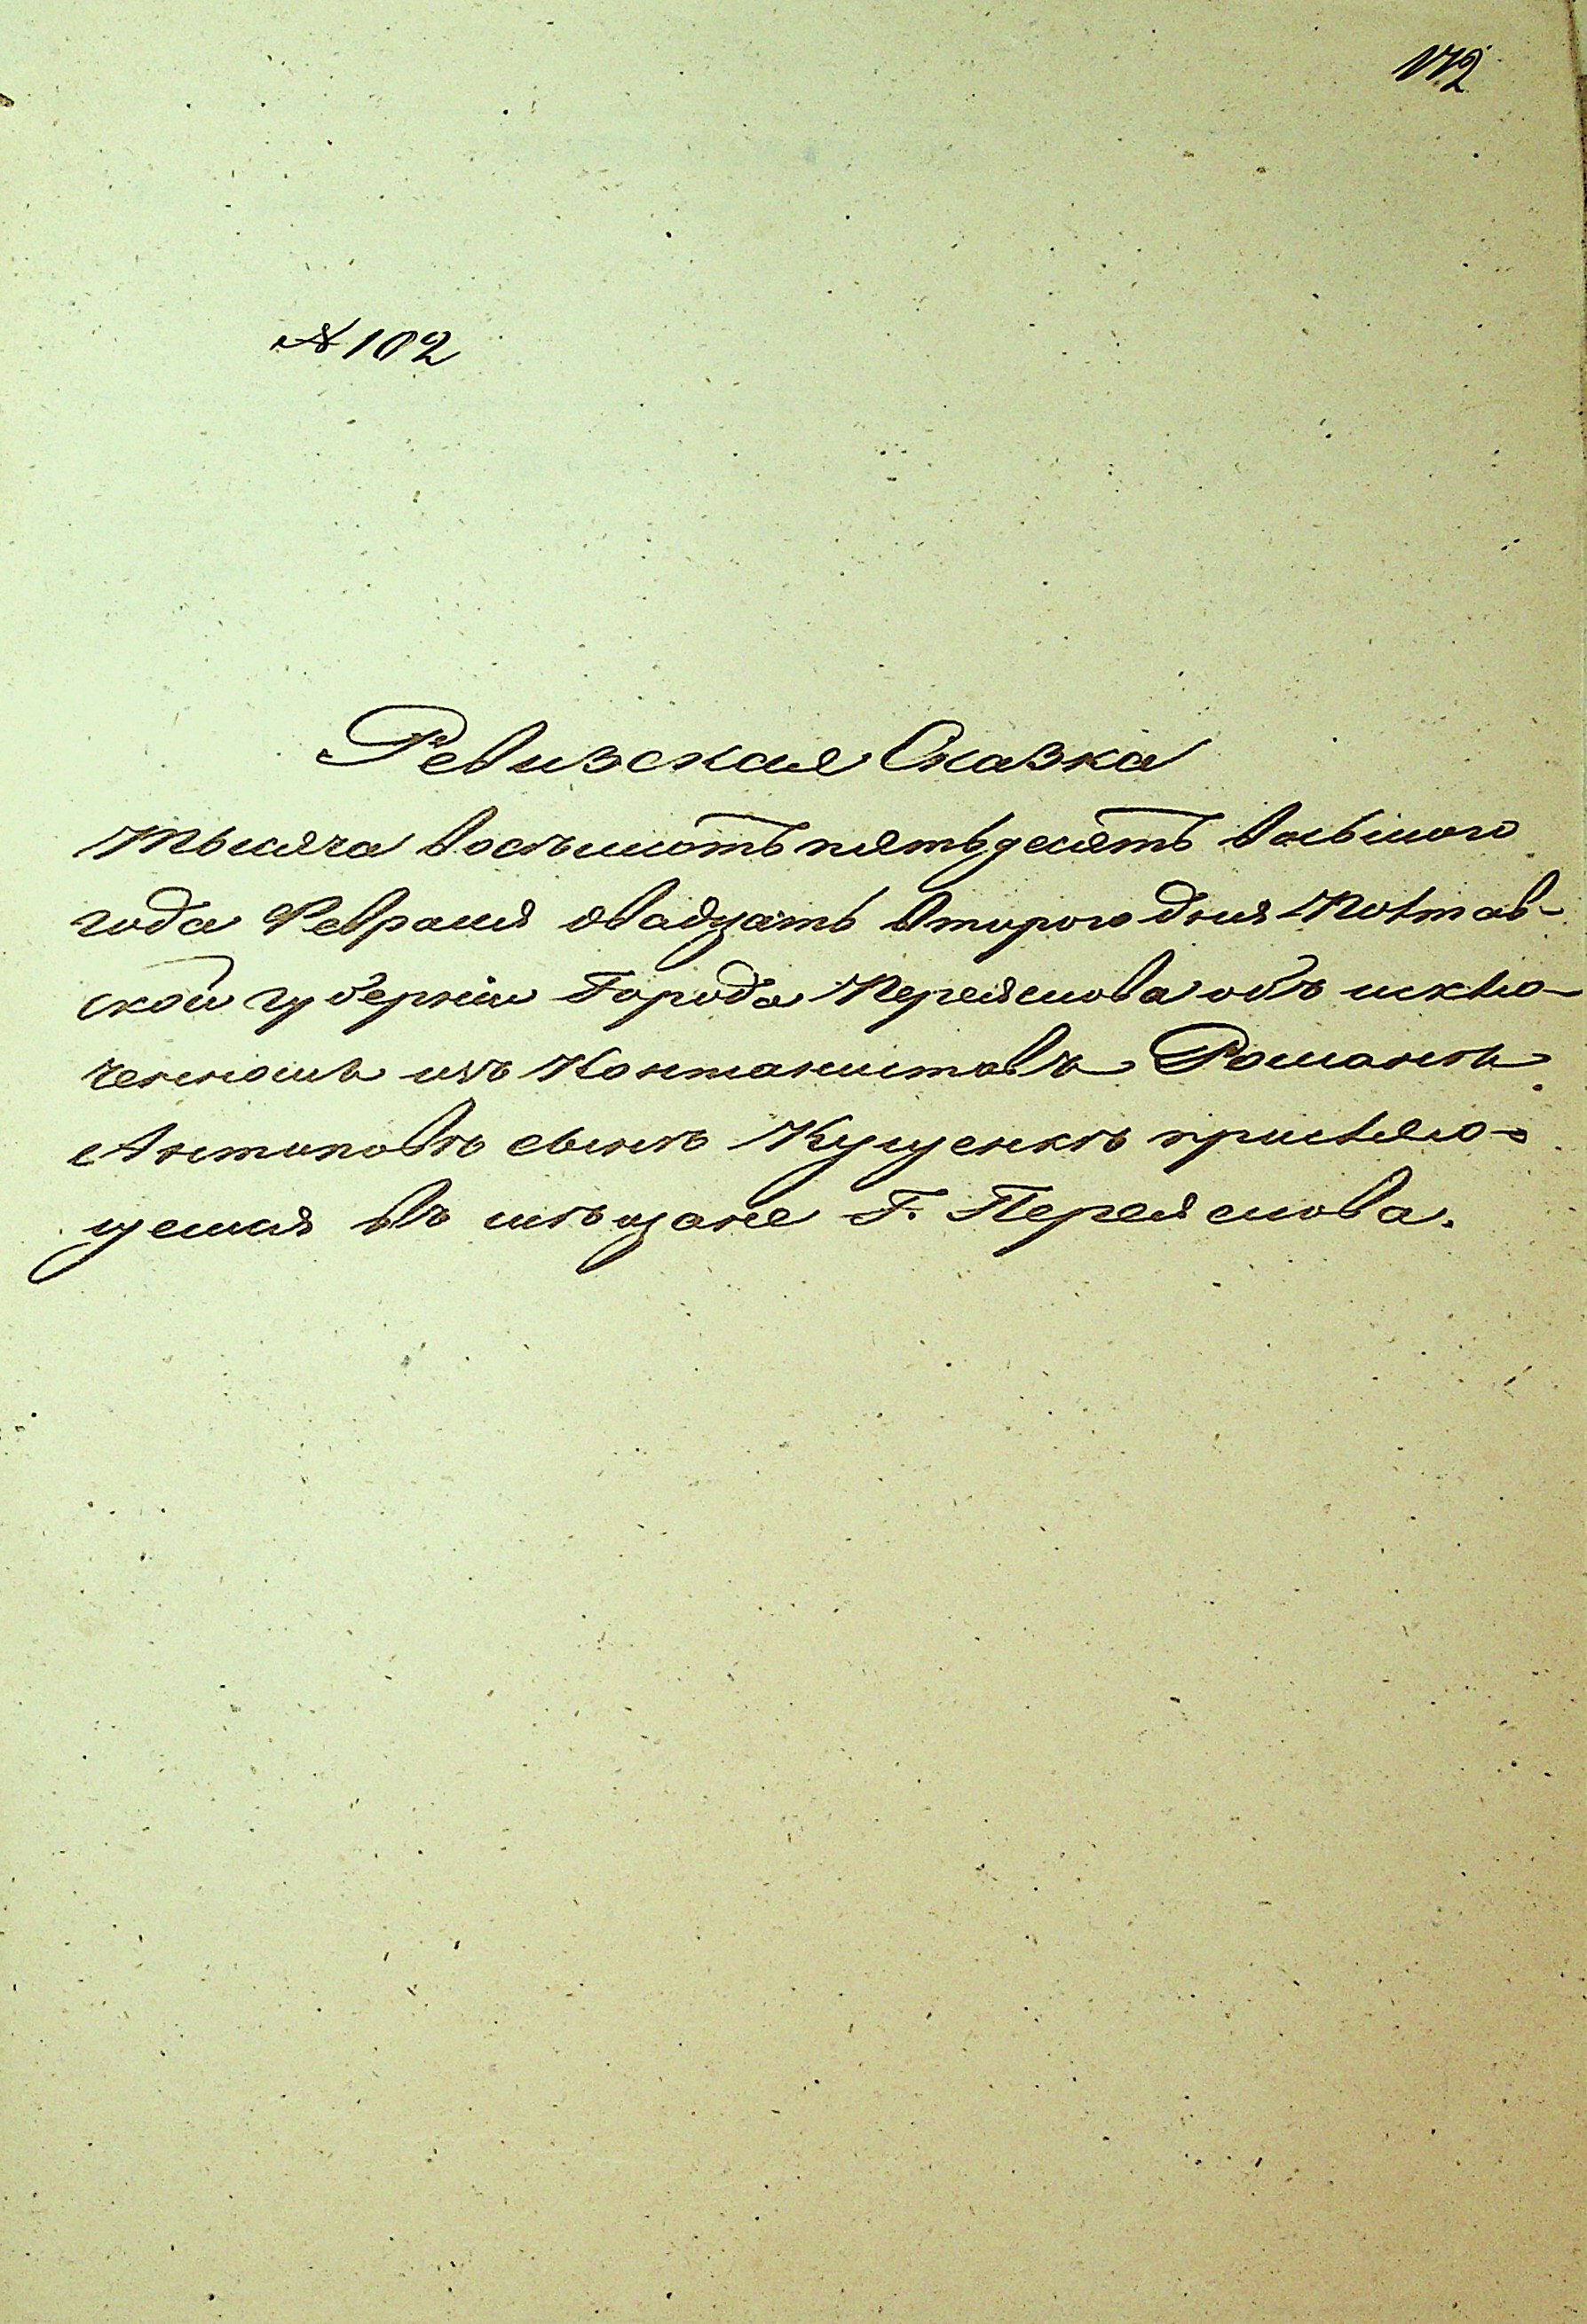 172
№ 102
Ревизская Сказка
Тысяча восъмьсотъ пятьдесятъ восьмого
года Февраля двадцать втораго дня Полтав-
ской губерніи Города Переяслова объ исклю-
ченномъ изъ Кантонистовъ Романъ
Антиповъ сынъ Куценкъ причислю-
щемся въ мѣщане Г. Переяслова.